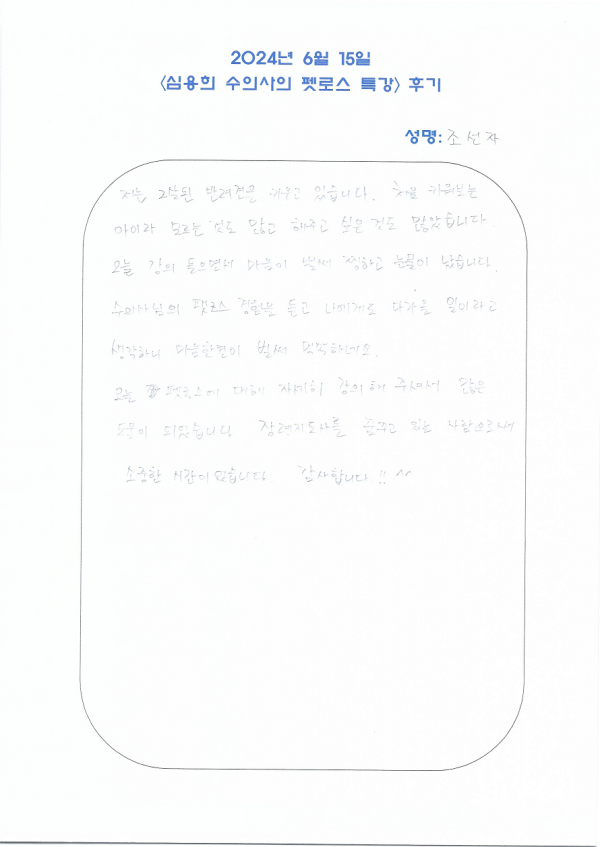 2024년 6월 15일
<심용희 수의사의 펫로스 특강> 후기
성명: 조선자
저는 2살된 반려견을 키우고 있습니다. 처음 키워보는
아이라 모르는 것도 많고 해주고 싶은 것도 많았습니다
오늘 강의 들으면서 마음이 벌써 찡하고 눈물이 났습니다.
수의사님의 펫로스 경험을 듣고 나에게도 다가올 일이라고
생각하니 마음한켠이 벌써 먹먹하네요.
오늘 펫로스에 대해 자세히 강의해 주셔서 많은
도움이 되었습니다 장례지도사를 꿈꾸고 있는 사람으로서
소중한 시간이었습니다. 감사합니다!! ^^